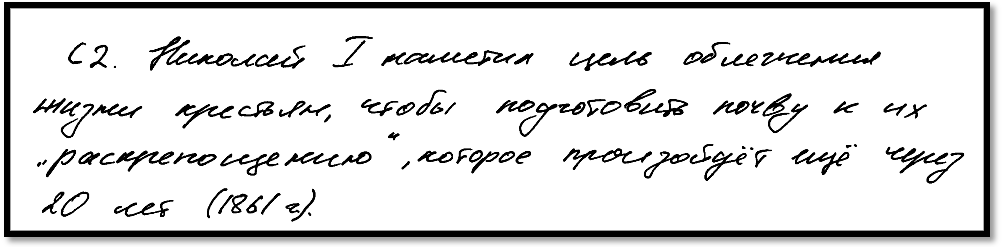 С2. Николай I наметил цель облегчения
жизни крестьян, чтобы подготовить почву к их
„раскрепощению“, которое произойдёт ещё через
20 лет (1861 г.).